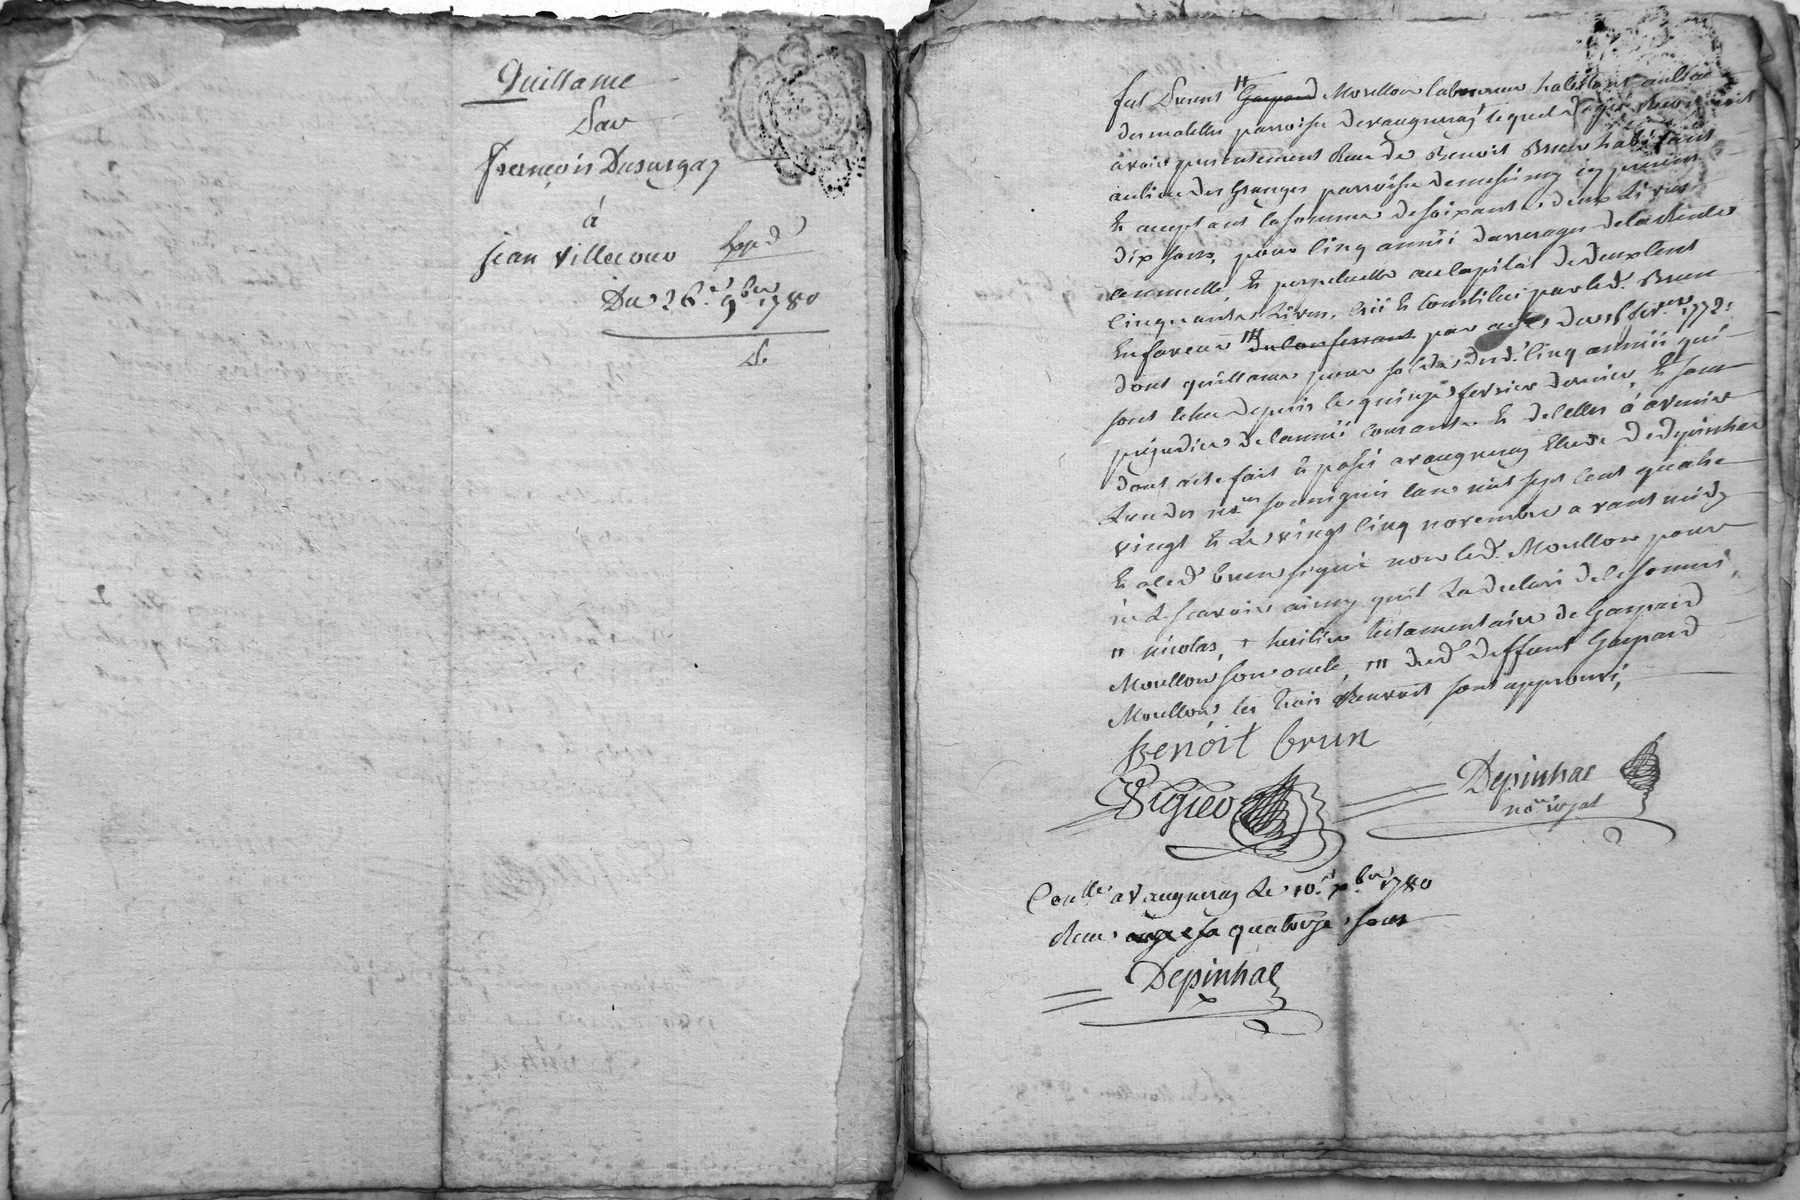 Quittance
Par
françois Dusurgey
à
jean Villecour Exped
Du 26.e 9.bre 1780
D.
fut Present " Gaspard Moullon laboureur habitant au lieu
des malettes parroisse de vaugneray lequel de gré Reconnoit
avoir presentement Receu de Benoit Brun habitant
au lieu des Granges parroisse de messimy icy present
Et acceptant la somme de soixante deux Livres
dix sous, pour cinq année d'arrerages de la Rente
annuelle et perpetuelle au Capital de deux cent
cinquante Livres, créé et constitué par led. Brun
En faveur "' du confessant par acte du 15 fevrier 1772:
dont quittance pour solde desd. cinq année qui
sont echu depuis le quinze fevrier dernier, Et sans
prejudice de l'année courante et de celles à avenir
dont acte fait et passé a vaugneray Etude de depinhac
Lun des nres soussignés l'an mil sept cent quatre
vingt et le vingt cinq novembre avant midy
Et a led. brun signé non led. Moullon pour
ne le scavoir ainsy quil La declaré de ce sommé,
" nicolas, + heritier testamentaire de Gaspard
Moullon son oncle, "' dud. deffunt Gaspard
Moullon les trois Renvoit sont approuvé,
Benoit brun
Vigier
Depinhac
nore royal
Conllé a Vaugneray Le 10.e x.bre 1780
Receu quatorze sous
Depinhac